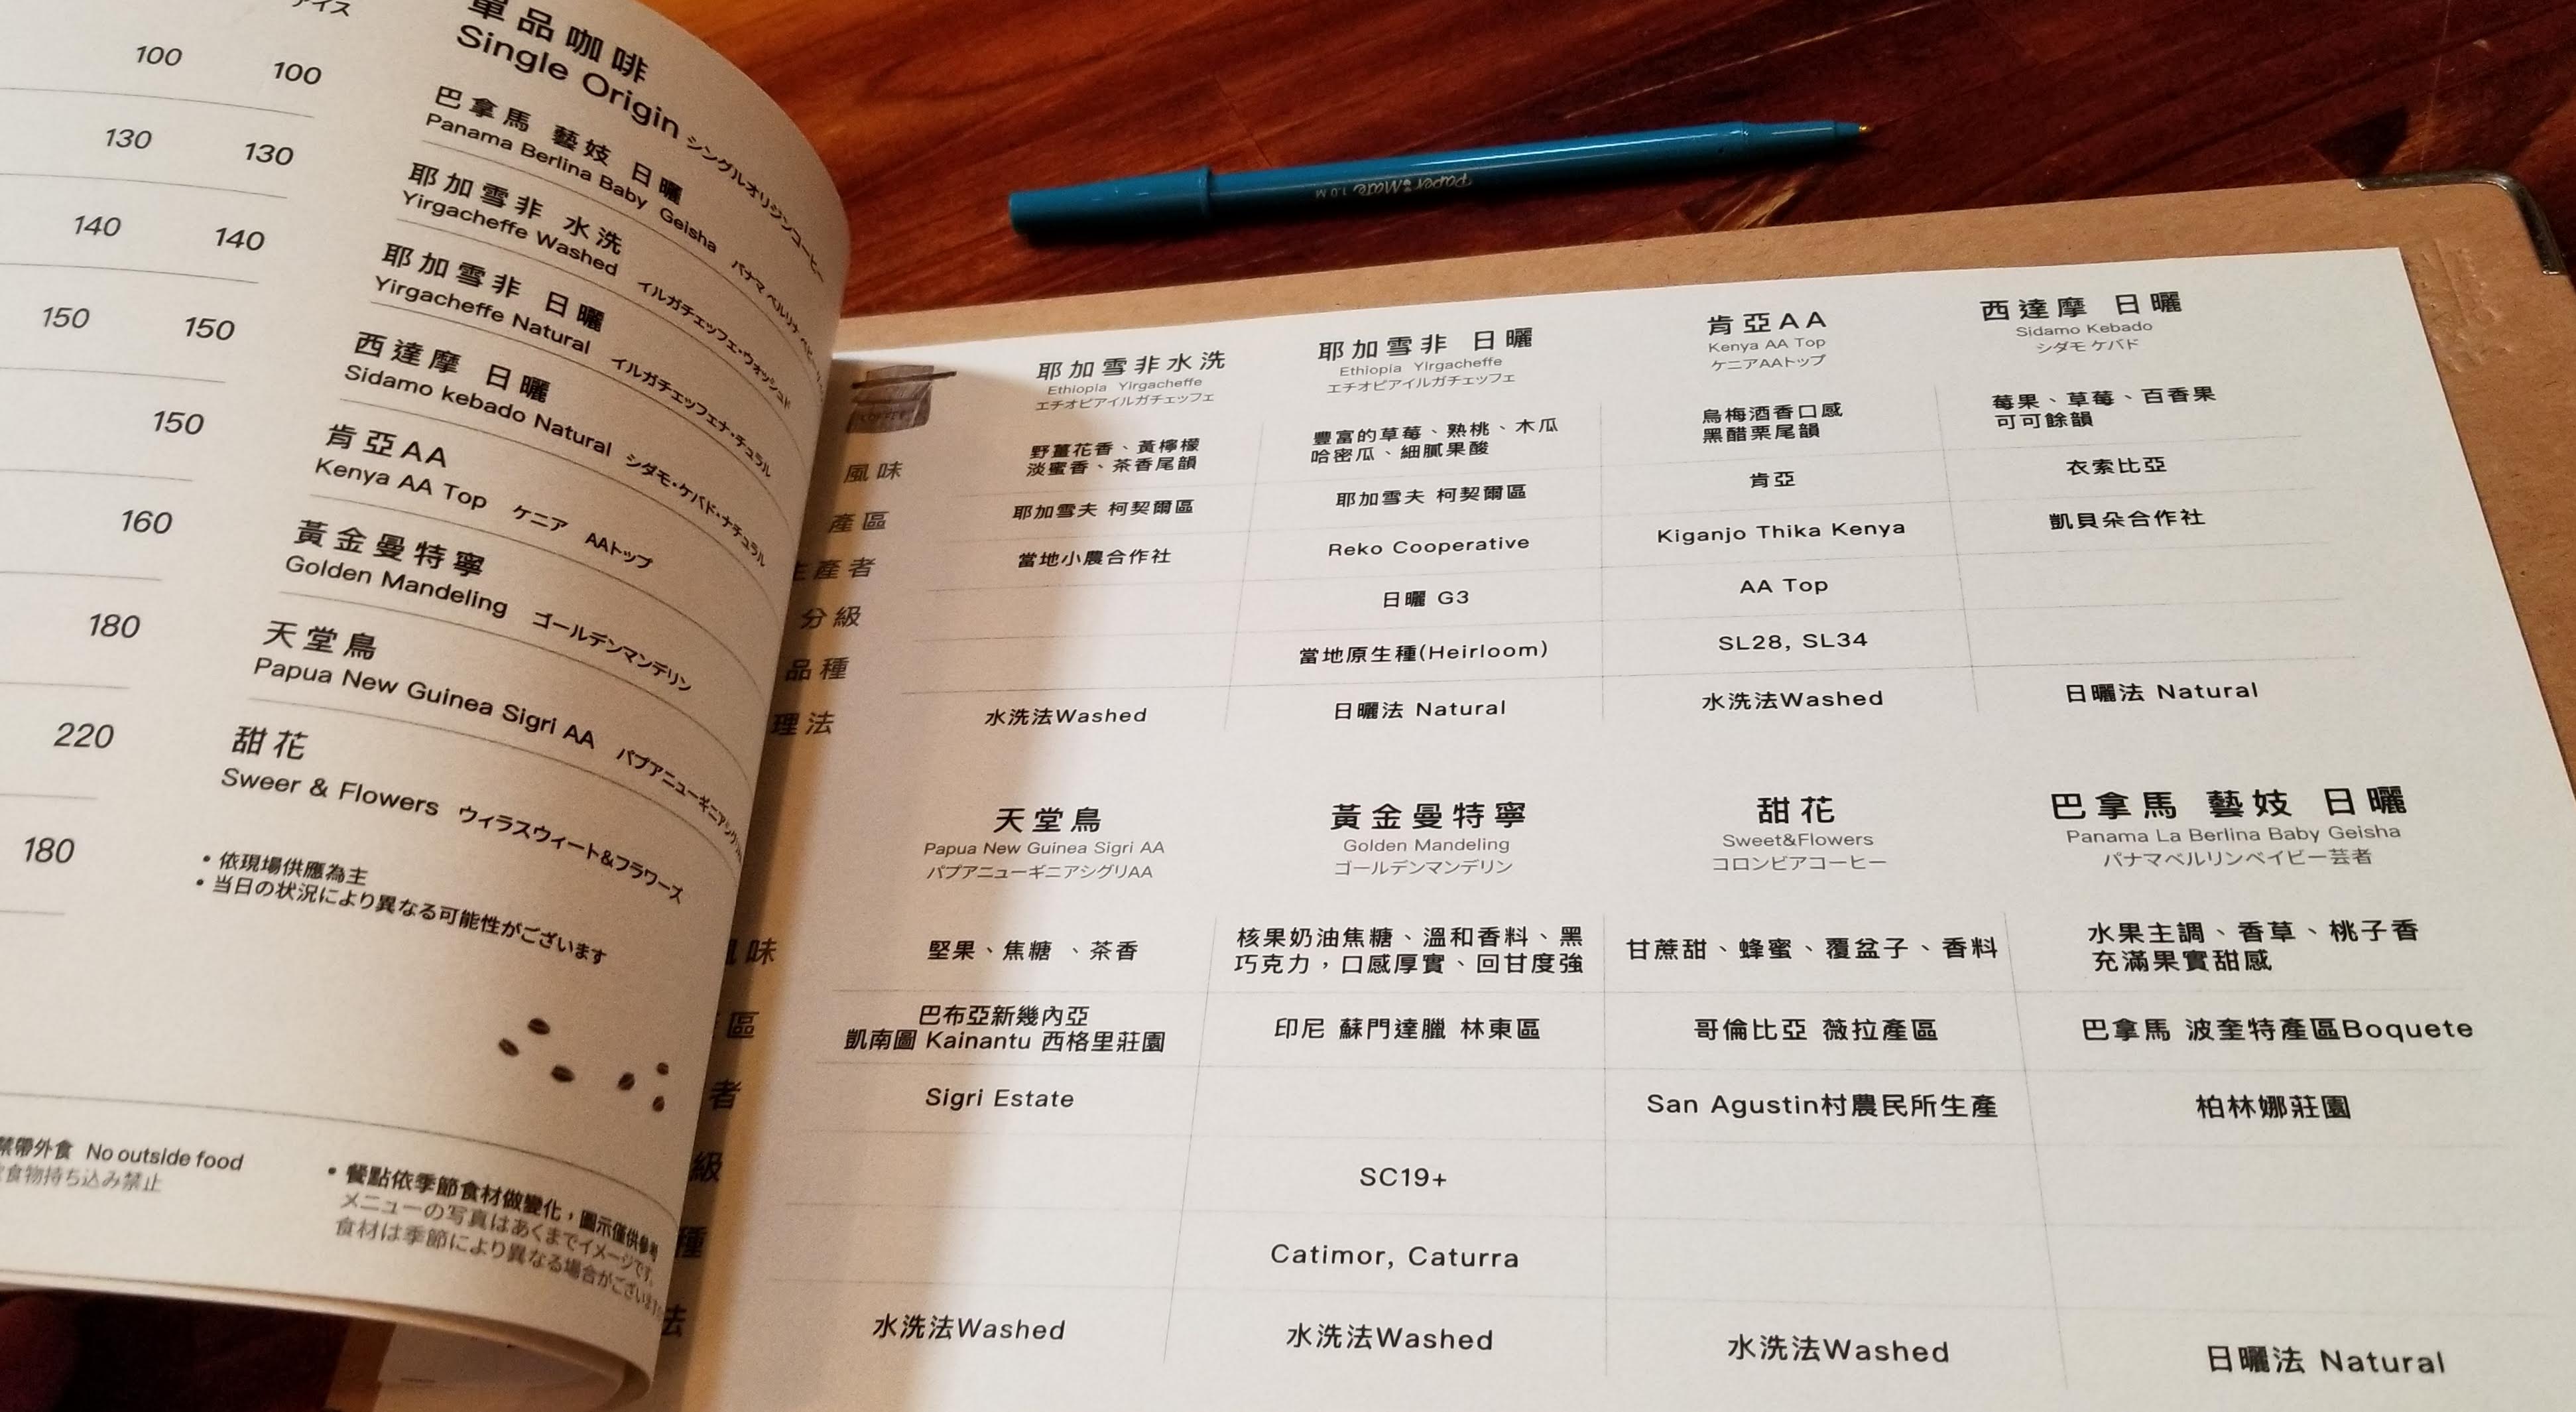 アイス
100 100
130 130
140 140
150 150
150
160
180
220
180
單品咖啡
Single Origin シングルオリジンコーヒー
巴拿馬 藝妓 日曬
Panama Berlina Baby Geisha パナマ ベルリナ ベビー
耶加雪非 水洗
Yirgacheffe Washed イルガチェッフェ・ウォッシュド
耶加雪非 日曬
Yirgacheffe Natural イルガチェッフェナ・チュラル
西達摩 日曬
Sidamo kebado Natural シダモ・ケバド・ナチュラル
肯亞AA
Kenya AA Top ケニア AAトップ
黃金曼特寧
Golden Mandeling ゴールデンマンデリン
天堂鳥
Papua New Guinea Sigri AA パプアニューギニアシグリ
甜花
Sweer & Flowers ウィラスウィート&フラワーズ
• 依現場供應為主
• 当日の状況により異なる可能性がございます
禁帶外食 No outside food
食物持ち込み禁止
• 餐點依季節食材做變化，圖示僅供參考
メニューの写真はあくまでイメージです。
食材は季節により異なる場合がございます
Paper Mate 1.0 M
COFFEE
耶加雪非水洗
Ethiopia Yirgacheffe
エチオピアイルガチェッフェ
耶加雪非 日曬
Ethiopia Yirgacheffe
エチオピアイルガチェッフェ
肯亞AA
Kenya AA Top
ケニアAAトップ
西達摩 日曬
Sidamo Kebado
シダモ ケバド
風味
野薑花香、黃檸檬
淡蜜香、茶香尾韻
豐富的草莓、熟桃、木瓜
哈密瓜、細膩果酸
烏梅酒香口感
黑醋栗尾韻
莓果、草莓、百香果
可可餘韻
產區
耶加雪夫 柯契爾區
耶加雪夫 柯契爾區
肯亞
衣索比亞
生產者
當地小農合作社
Reko Cooperative
Kiganjo Thika Kenya
凱貝朵合作社
分級
日曬 G3
AA Top
品種
當地原生種(Heirloom)
SL28, SL34
理法
水洗法Washed
日曬法 Natural
水洗法Washed
日曬法 Natural
天堂鳥
Papua New Guinea Sigri AA
パプアニューギニアシグリAA
黃金曼特寧
Golden Mandeling
ゴールデンマンデリン
甜花
Sweet&Flowers
コロンビアコーヒー
巴拿馬 藝妓 日曬
Panama La Berlina Baby Geisha
パナマベルリンベイビー芸者
風味
堅果、焦糖 、茶香
核果奶油焦糖、溫和香料、黑
巧克力，口感厚實、回甘度強
甘蔗甜、蜂蜜、覆盆子、香料
水果主調、香草、桃子香
充滿果實甜感
區
巴布亞新幾內亞
凱南圖 Kainantu 西格里莊園
印尼 蘇門達臘 林東區
哥倫比亞 薇拉產區
巴拿馬 波奎特產區Boquete
者
Sigri Estate
San Agustin村農民所生產
柏林娜莊園
級
SC19+
種
Catimor, Caturra
法
水洗法Washed
水洗法Washed
水洗法Washed
日曬法 Natural